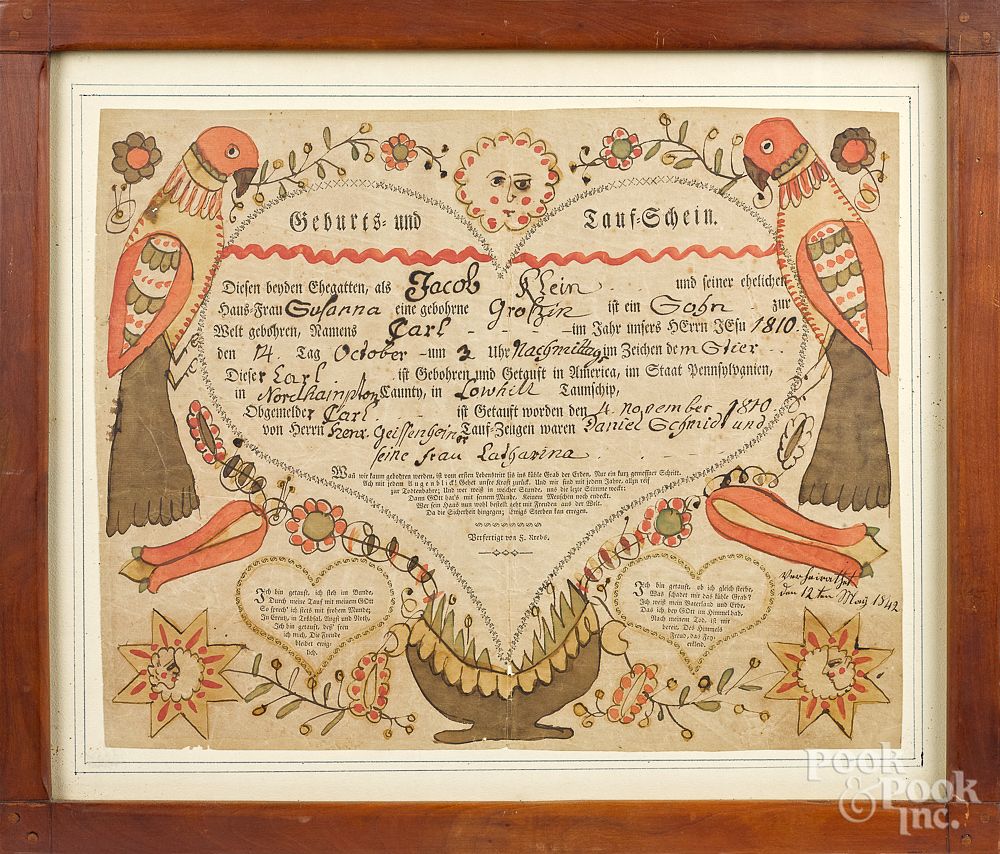 Geburts- und Tauf-Schein.
Diesen beyden Ehegatten, als Jacob Klein und seiner ehelichen
Haus-Frau Susanna eine gebohrne Grotzin ist ein Sohn zur
Welt gebohren, Namens Carl im Jahr unsers HErrn JEsu 1810.
den 14. Tag October um 3 Uhr Nachmittag im Zeichen dem Stier
Dieser Carl ist Gebohren und Getauft in America, im Staat Pennsylvanien,
in Nordhampton Caunty, in Lowhill Taunschip,
Obgemelder Carl ist Getauft worden den 4. november 1810
von Herrn Henr. Geissenheiner Tauf-Zeugen waren Daniel Schmid und
seine frau Catharina
Wann wir kaum gebohren werden, ist vom ersten Lebenstritt bis ins kühle Grab der Erden, Nur ein kurz gemessner Schritt.
Ach mit jedem Augenblick! Gehet unsre Kraft zurück, Und wir sind mit jedem Jahre, allzu reif
zur Todtenbahre; Und wer weiß in welcher Stunde, uns die letzte Stimme weckt:
Dann GOtt hat's mit seinem Munde, Keinem Menschen noch endeckt.
Wer sein Haus nun wohl bestellt geht mit Freuden aus der Welt.
Da die Sicherheit hingegen; Ewigs Sterben kan erregen.
Verfertigt von F. Krebs.
Ich bin getauft, ich steh im Bunde,
Durch meine Tauf mit meinem GOtt
So sprech' ich stets mit frohem Munde;
In Creutz, in Trübsal, Angst und Noth,
Ich bin getauft, deß' freu
ich mich, Die Freude
bleibet ewig-
lich.
Ich bin getauft, ob ich gleich sterbe,
Was schadet mir das kühle Grab?
Ich weiß mein Vaterland und Erbe,
Das ich bey GOtt im Himmel hab.
Nach meinem Tod, ist mir
bereit, Des Himmels
Freud, das Fey-
erkleid.
Verheirathet
den 12ten May 1842
Pook
& Pook
Inc.